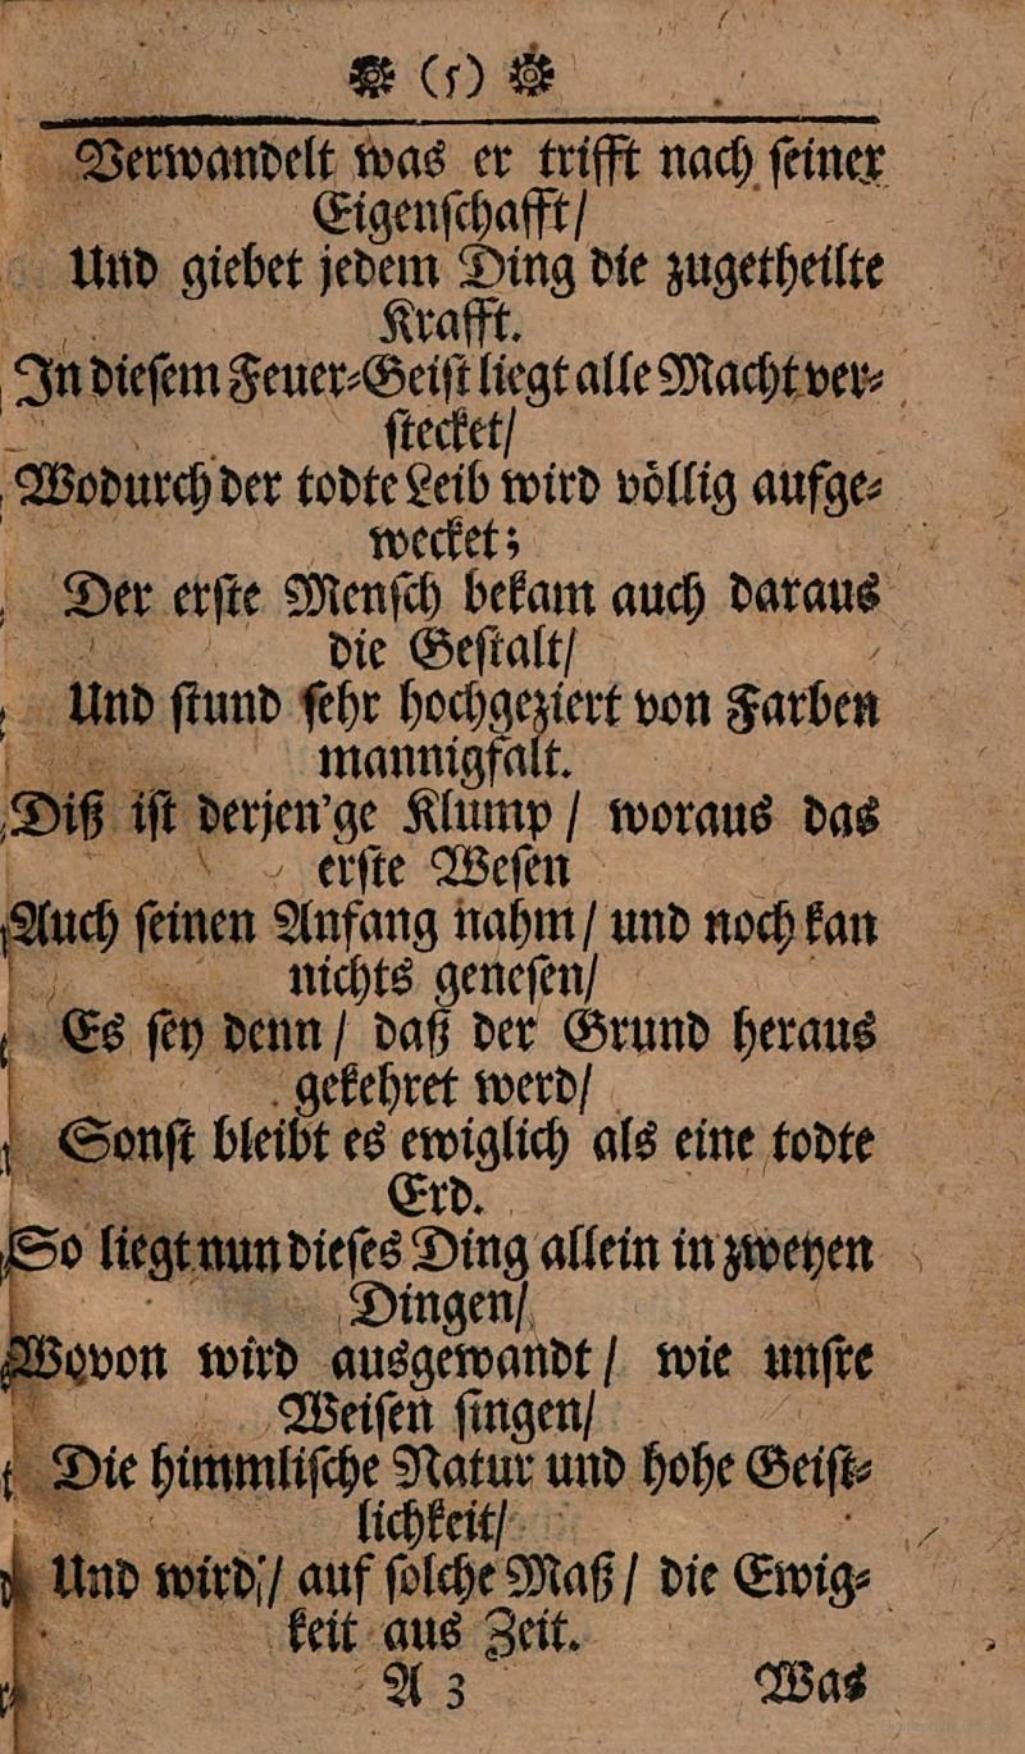 (5)
Verwandelt was er trifft nach seiner
Eigenschafft/
Und giebet jedem Ding die zugetheilte
Krafft.
In diesem Feuer-Geist liegt alle Macht ver-
stecket/
Wodurch der todte Leib wird völlig aufge-
wecket;
Der erste Mensch bekam auch daraus
die Gestalt/
Und stund sehr hochgeziert von Farben
mannigfalt.
Diß ist derjen'ge Klump / woraus das
erste Wesen
Auch seinen Anfang nahm / und noch kan
nichts genesen/
Es sey denn / daß der Grund heraus
gekehret werd/
Sonst bleibt es ewiglich als eine todte
Erd.
So liegt nun dieses Ding allein in zweyen
Dingen/
Wovon wird ausgewandt / wie unsre
Weisen singen/
Die himmlische Natur und hohe Geist-
lichkeit/
Und wird / auf solche Maß / die Ewig-
keit aus Zeit.
A 3 Was